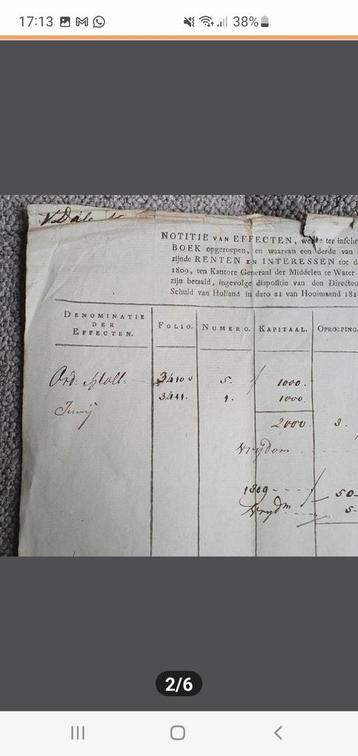 17:13 38%
NOTITIE VAN EFFECTEN, welke ter inschr
BOEK opgeroepen, en waarvan een derde van
zijnde RENTEN EN INTERESSEN tot d
1809, ten Kantore Generaal der Middelen te Water
zijn betaald, ingevolge dispositie van den Directeu
Schuld van Holland in dato 21 van Hooimaand 181
DENOMINATIE
DER
EFFECTEN.
FOLIO. NUMERO. KAPITAAL. OPROEPING
Ord. Holl. 5. 1000.
Junij 3441. 1. 1000.
2000 3.
Vrydom
1809 50
Vrydm 5
2/6